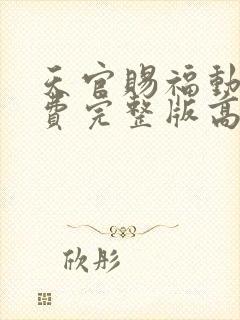 天官赐福動
费完整版高
欣彤